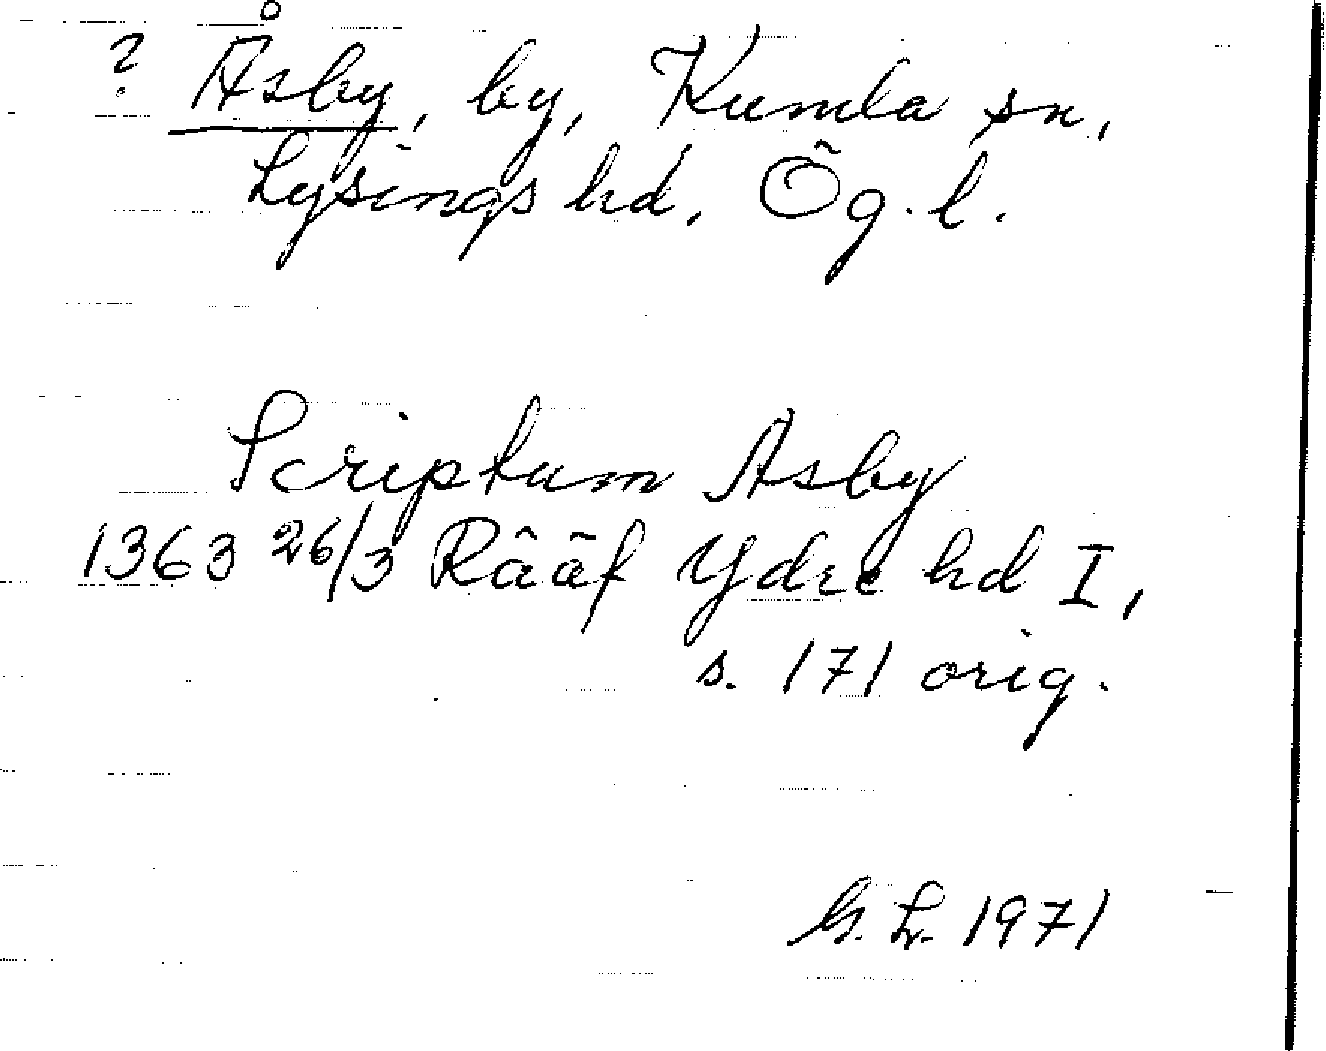 ? Åsby, by, Kumla sn,
Lysings hd, Ög. l.
Scriptum Asby
1363 26/3 Rääf Ydre hd I,
s. 171 orig.
G. L. 1971